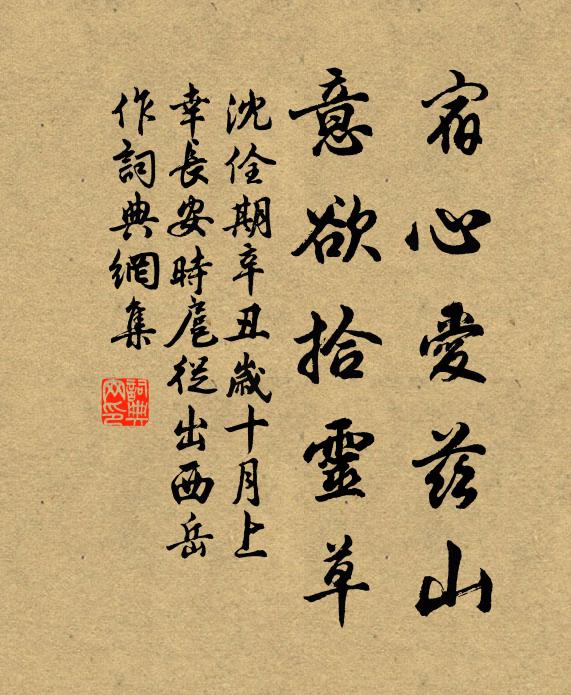 宿心愛茲山
意欲拾靈草
沈佺期辛丑歲十月上
幸長安時扈從出西岳
作詞典網集
詞典
网印